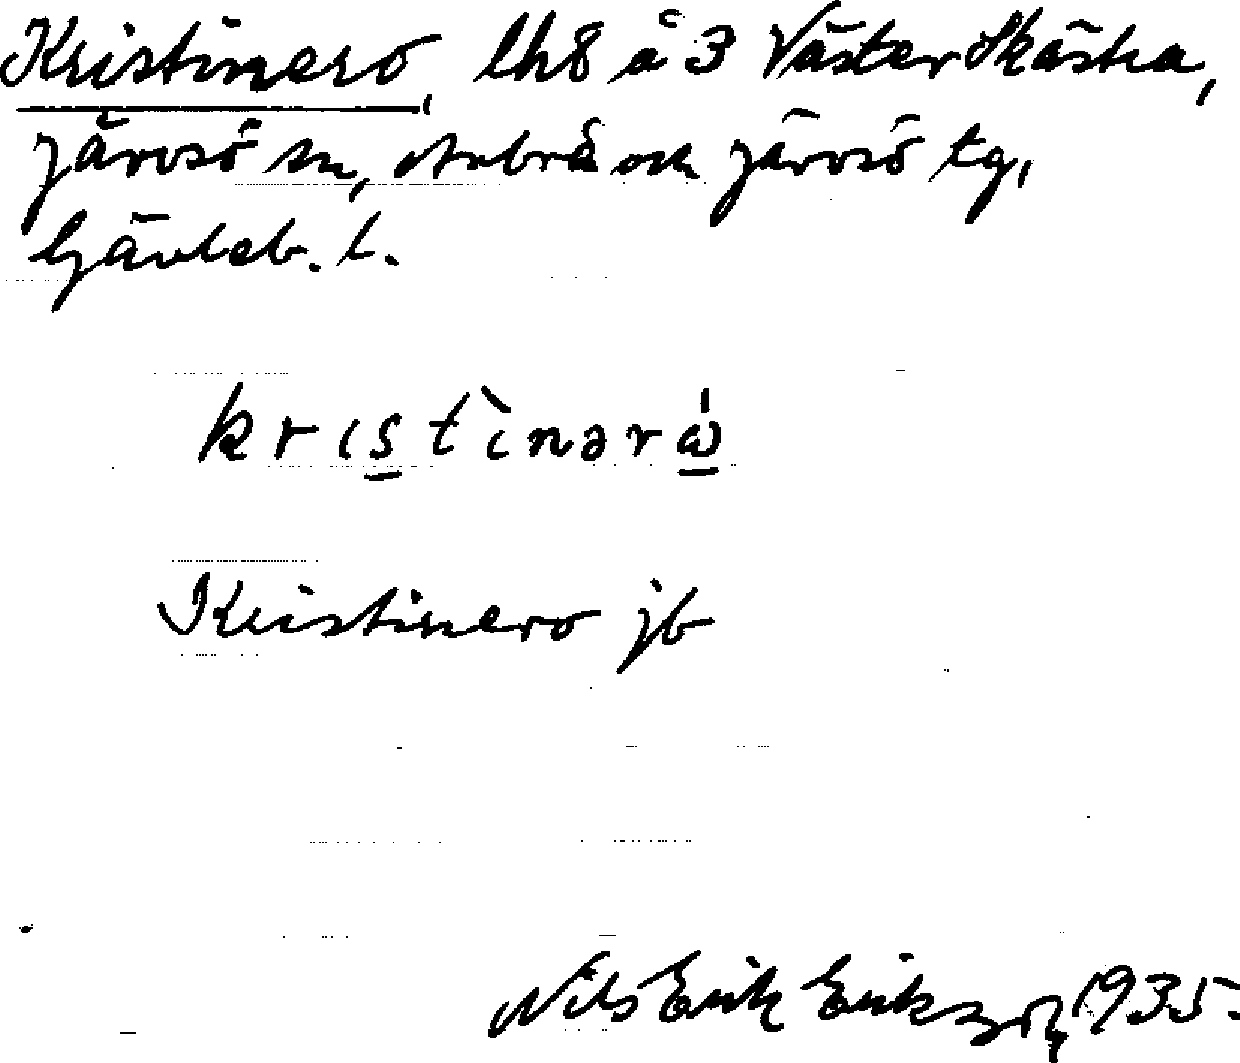 Kristinero, lh8 å 3 Väster Skästra,
Järvsö sn, Arbrå och Järvsö tg,
Gävleb. l.
kristìnərω̇
Kristinero jb
Nils Erik Eriksson, 1935.